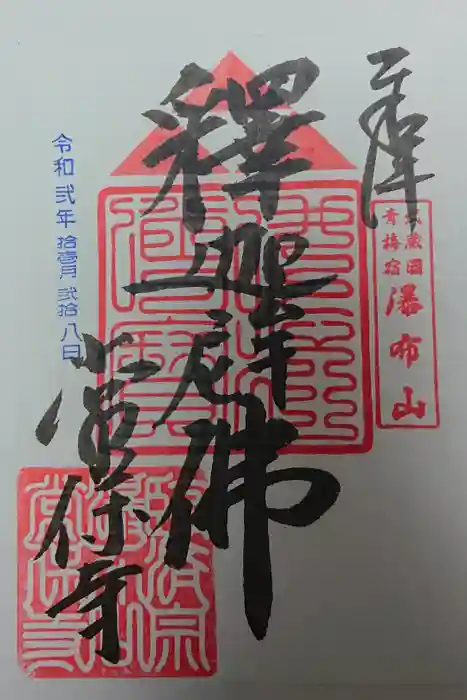 奉拝
武蔵国
青梅宿
瀑布山
釋迦牟尼佛
常保寺
令和弐年拾壱月弐拾八日